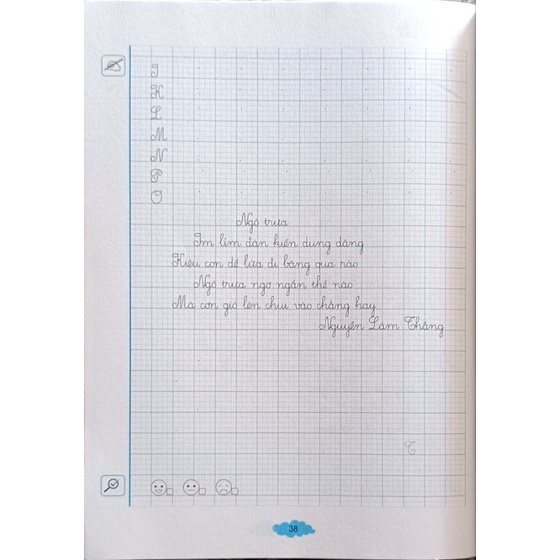 I
K
L
M
N
P
O
Ngõ trưa
Im lìm đàn kiến dung dăng
Kiệu con dế lửa đi băng qua rào
Ngõ trưa ngơ ngẩn thế nào
Mà con gió lẻn chui vào chẳng hay
Nguyễn Lãm Thắng
T
38